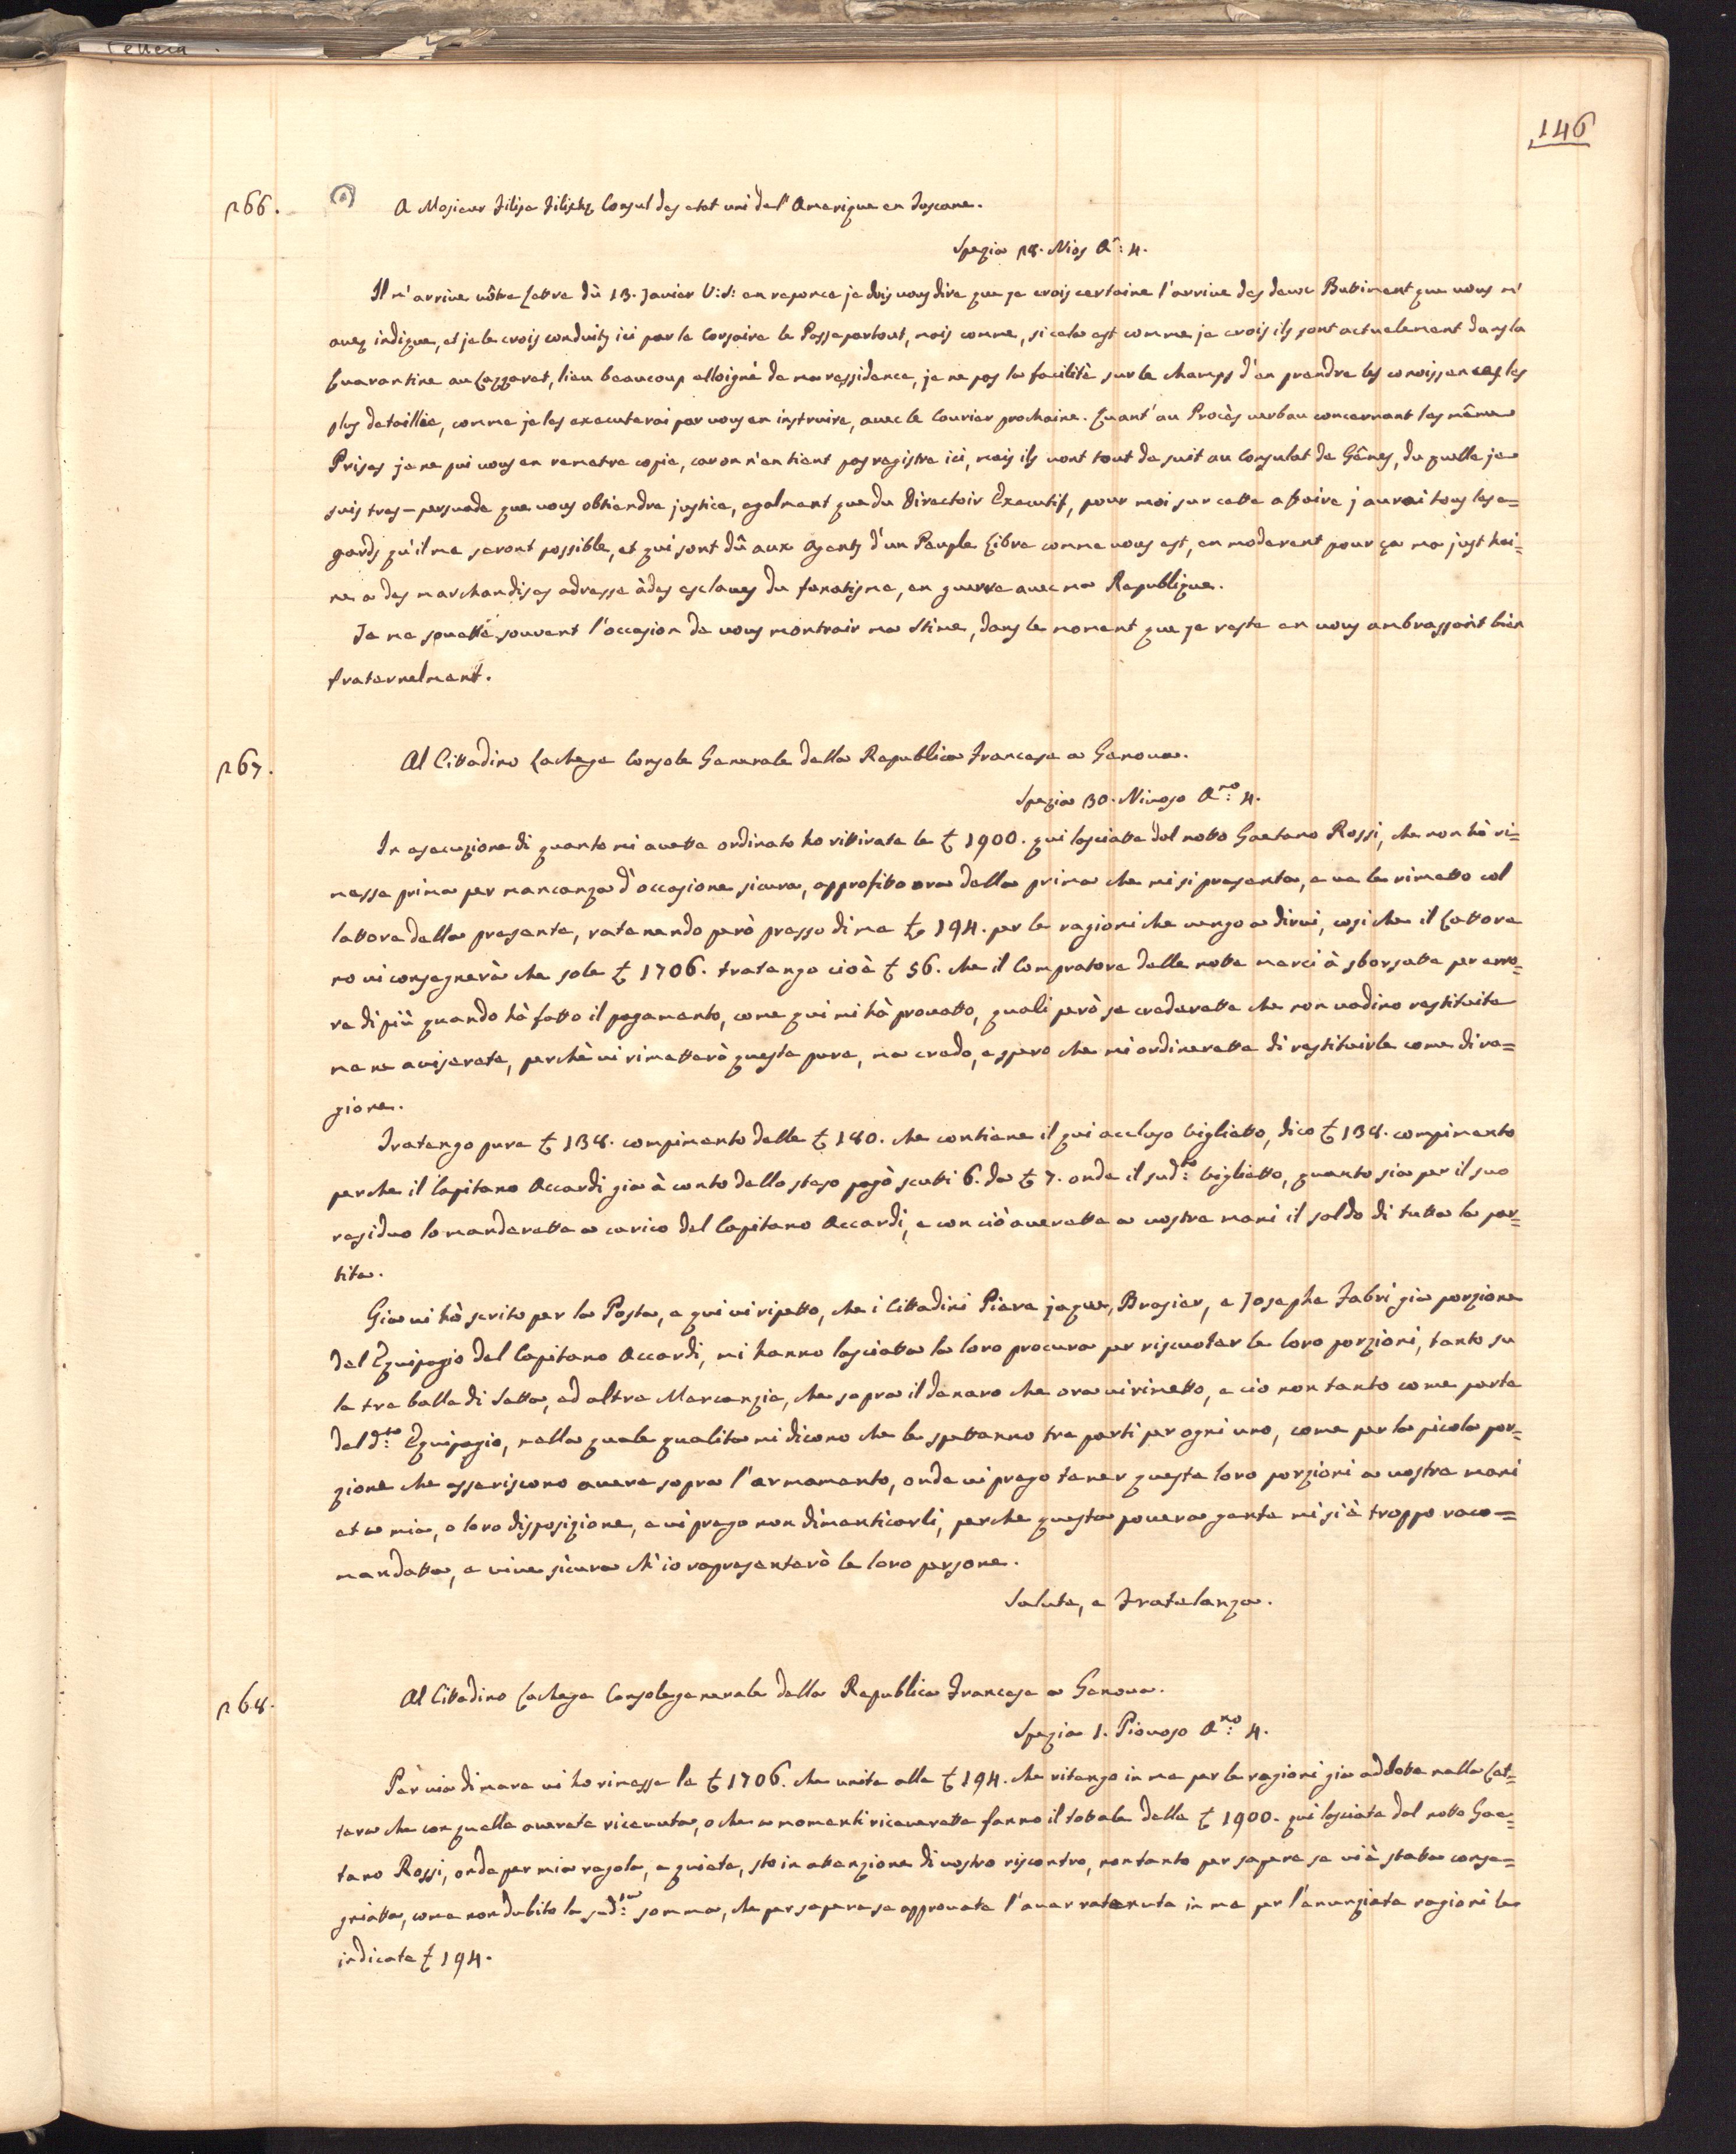 146
266.
A Mosieur Filipe Filicky Consul des etat uni de l'Amerique en Toscane.
Spezia 28. Nios A.n: 4.
Il m'arrive vôtre Lettre dù 13. Janvier V:S: en reponce je dois vous dire que je crois certaine l'arrive des deux Batiment que vous m'
avez indique, et je le crois conduits ici par le Corsaire le Passepartout, mais comme, si cela est comme je crois ils sont actuelement dans la
Quarantine au Lazzaret, lieu beaucoup elloigné de ma ressidence, je ne pas la facilité sur le champs d'en prendre les conoissences les
plus detaillée, comme je les executerai par vous en instruire, avec le Courier prochaine. Quant'au Procès verbau concernant les même
Prises je ne pui vous en remetre copie, car on n'en tient pas registre ici, mais ils vont tout de suit au Consulat de Gênes, du quelle je
suis tres-persuade que vous obtiendre justice, egalment que du Directoir Executif, pour moi sur cette afaire j'aurai tous les e=
gards qu'il me seront possible, et qui sont dû aux Agents d'un Peuple Libre comme vous est, en moderent pour ça ma just hai=
ne a des marchandises adresse à des esclaves du fanatisme, en guerre avec ma Republique.
Je me souette souvent l'occasion de vous montrair ma Stime, dans le moment que je reste en vous ambrassant bien
fraternelment.
267.
Al Cittadino Lachege Console Generale della Republica Francese a Genova.
Spezia 30. Nivoso A.no: 4.
In esecuzione di quanto mi avette ordinato ho rittirate le £ 1900. qui lasciatte dal notto Gaetano Rossi, che non hò ri=
messe prima per mancanza d'occasione sicura, approfitto ora della prima che mi si presenta, e ve le rimetto col
lattore della presente, ratenendo però presso di me £ 194. per le ragioni che vengo a dirvi, cosi che il Lattore
no vi consegnerà che sole £ 1706. tratengo cioè £ 56. che il Compratore delle notte merci à sborsatte per erro=
re di più quando hà fatto il pagamento, come qui mi hà provatto, quali però se crederette che non vadino restituite
me ne aviserete, perchè vi rimetterò queste pure, ma credo, e spero che mi ordinerette di restituirle come di ra=
gione.
Tratengo pure £ 138. compimento delle £ 180. che contiene il qui accluso biglietto, dico £ 138. compimento
perche il Capitano Accardi gia à conto dello steso pagò scutti 6. da £ 7. onde il sud.to: biglietto, quanto sia per il suo
residuo lo manderette a carico del Capitano Accardi, e con ciò averette a vostre mani il saldo di tutta la par=
tita.
Gia vi hò scrito per la Posta, e qui vi ripetto, che i Cittadini Piere jaque, Brasier, e Josephe Fabri gia porzione
del Equipagio del Capitano Accardi, mi hanno lasciatta la loro procura per riscuoter le loro porzioni, tanto su
le tre balle di Setta, ed altre Mercanzie, che sopra il denaro che ora vi rimetto, e cio non tanto come parte
del d.to: Equipagio, nella quale qualita mi dicono che le spettanno tre parti per ogni uno, come per la picola por=
zione che asseriscono avere sopra l'armamento, onde vi prego tener queste loro porzioni a vostre mani
et a mia, o loro disposizione, e vi prego non dimenticarli, perche questa povera gente mi si è troppo raco=
mandatta, e vive sicura ch'io rapresenterò le loro persone.
Salute, e Fratelanza.
268.
Al Cittadino Lachege Console generale della Republica Francese a Genova.
Spezia 1. Piovoso A.no: 4.
Per via di mare vi ho rimesse le £ 1706. che unite alle £ 194. che ritengo in me per le ragioni gia addotte nella Let=
tera che con quelle averete ricevuta, o che a momenti riceverette fanno il totale delle £ 1900. qui lasciate dal notto Gae=
tano Rossi, onde per mia regola, e quiete, sto in attenzione di vostro riscontro, non tanto per sapere se vi è statta conse=
gniatta, come non dubito la sud.ta: somma, che per sapere se approvate l'aver ratenuta in me per l'enunziate ragioni le
indicate £ 194.